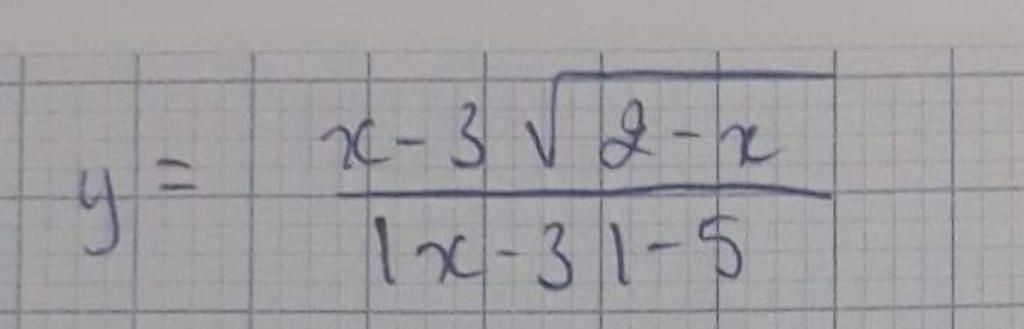 y = \frac{x - 3\sqrt{2 - x}}{|x - 3| - 5}